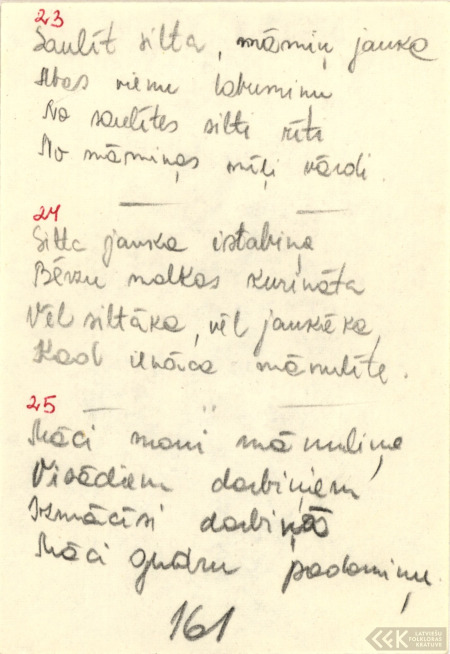 23
Saulīt silta, māmiņ jauka
Abas vienu labumiņu
No saulītes silti rīti
No māmiņas mīļi vārdi.
24
Silta jauka istabiņa
Bērzu malkas kurināta
Vēl siltāka, vēl jaukāka,
Kad ienāca māmulīte.
25
Māci mani māmuliņe
Visādiem darbiņiem
Izmācīsi darbiņā
Māci gudru padomiņu
161
LATVIEŠU
FOLKLORAS
KRĀTUVE